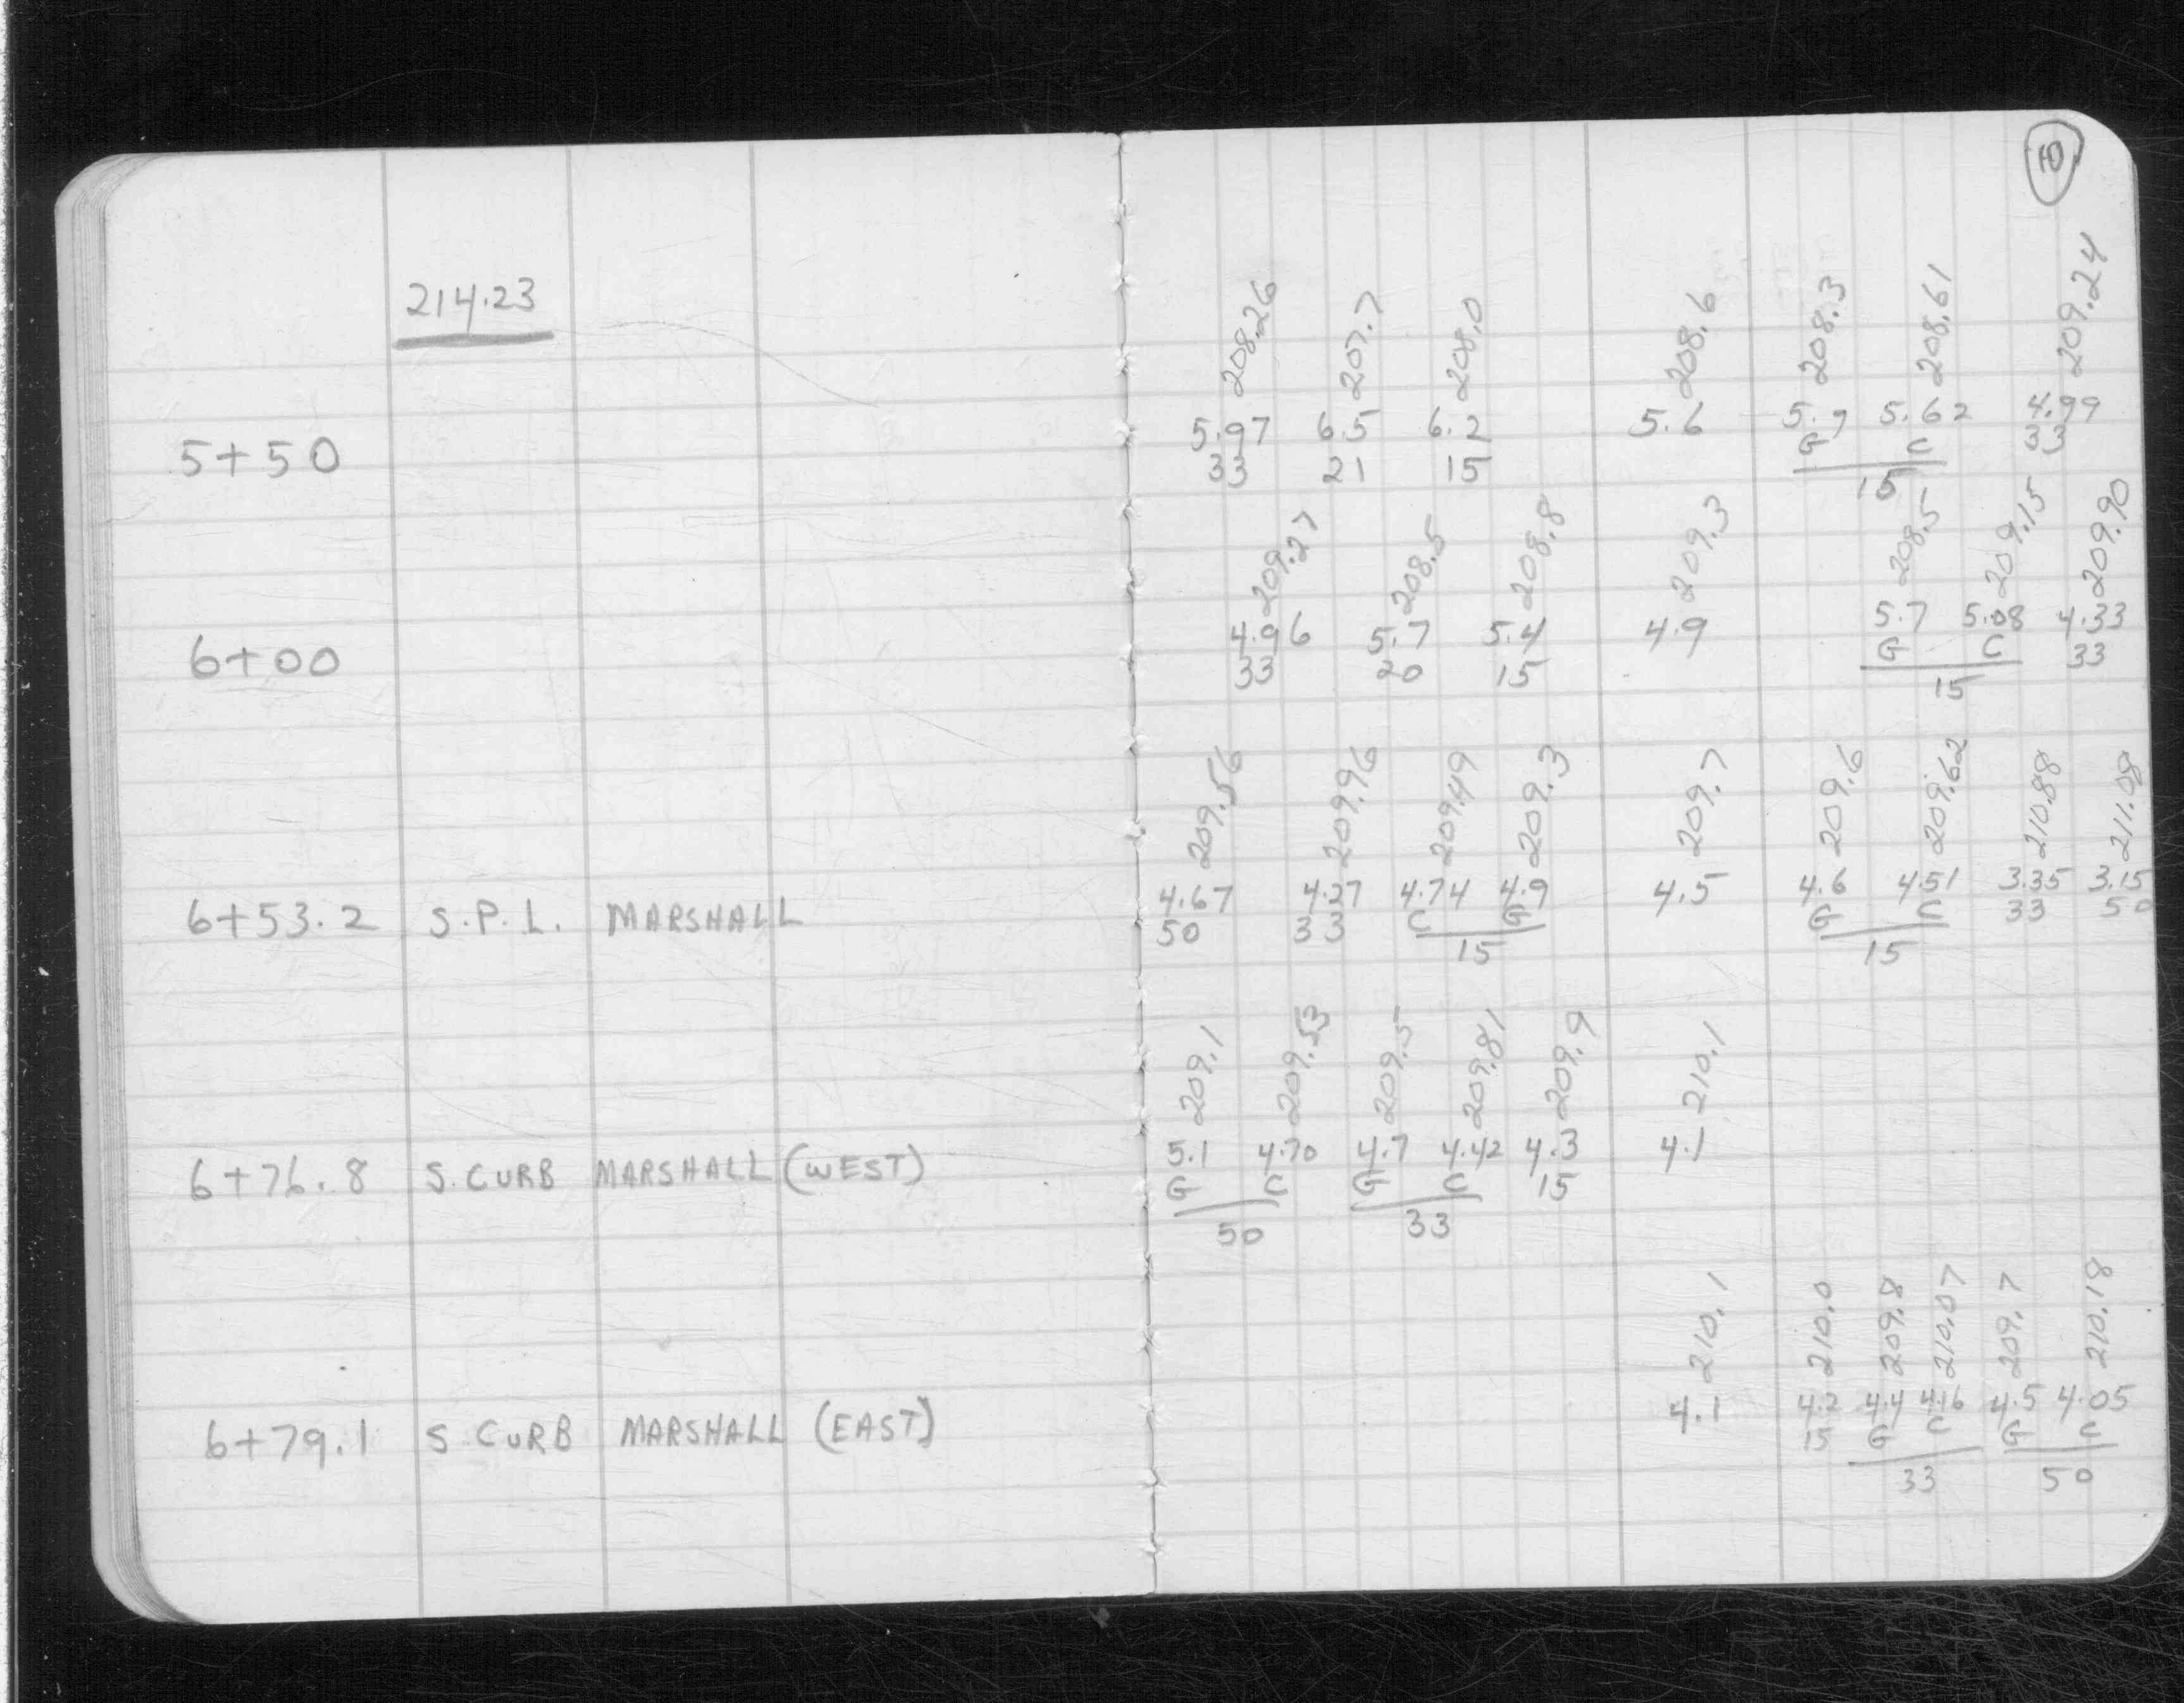 214.23
208.26 207.7 208.0 208.6 208.3 208.61 209.24
5.97 6.5 6.2 5.6 5.9 5.62 4.99
5+50 33 21 15 G C 33
15
209.27 208.5 208.8 209.3 208.5 209.15 209.90
4.96 5.7 5.4 4.9 5.7 5.08 4.33
6+00 33 20 15 G C 33
15
209.56 209.96 209.49 209.3 209.7 209.6 209.62 210.88 211.08
4.67 4.27 4.74 4.9 4.5 4.6 4.51 3.35 3.15
6+53.2 S.P.L. MARSHALL 50 33 C G G C 33 50
15 15
209.1 209.53 209.5 209.81 209.9 210.1
5.1 4.70 4.7 4.42 4.3 4.1
6+76.8 S. CURB MARSHALL (WEST) G C G C 15
50 33
210.1 210.0 209.8 210.07 209.7 210.18
4.1 4.2 4.4 4.16 4.5 4.05
6+79.1 S CURB MARSHALL (EAST) 15 G C G C
33 50